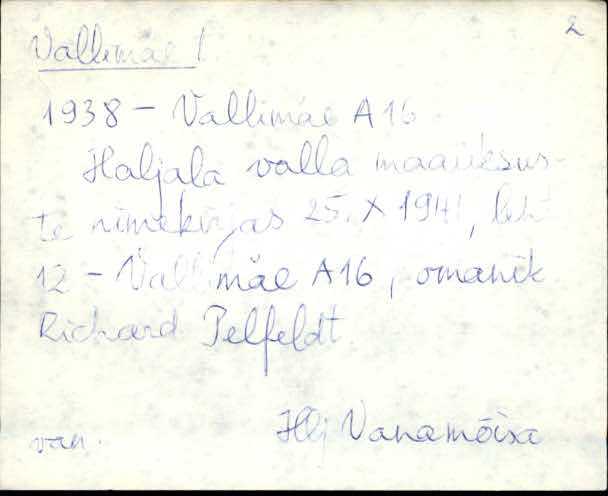 2
Vallimäe 1
1938 – Vallimäe A16
Haljala valla maaüksus-
te nimekirjas 25. X 1941, leht
12 – Vallimäe A16, omanik
Richard Pelfeldt
van. Hlj Vanamõisa